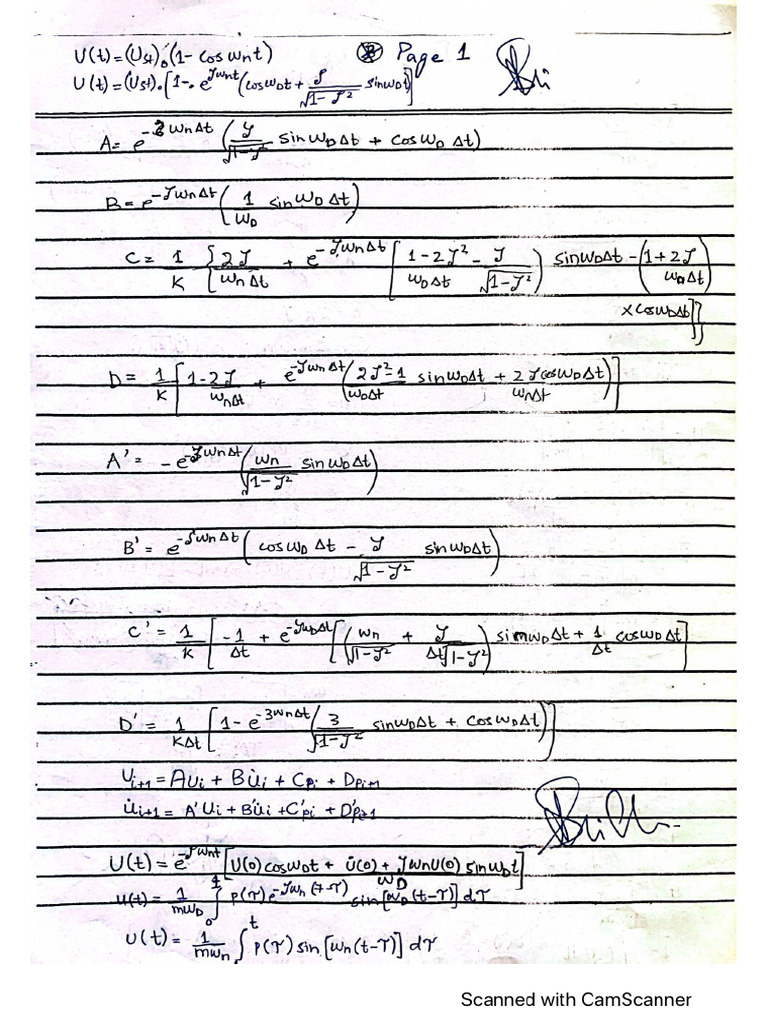 U(t) = (Ust)₀ (1 - cos ωnt)
Page 1
U(t) = (Ust)₀ [1 - e^Jωnt (cos ωDt + J/√(1-J²) sin ωDt]
A = e^-3ωnΔt (J/√(1-J²) sin ωDΔt + cos ωD Δt)
B = e^-JωnΔt (1/ωD sin ωD Δt)
C = 1/K {2J/ωnΔt + e^-JωnΔt [1-2J²/ωDΔt - J/√(1-J²)) sin ωDΔt - (1+2J/ωnΔt)
× cos ωDΔt]}
D = 1/K [1-2J/ωnΔt + e^-JωnΔt (2J²-1/ωDΔt sin ωDΔt + 2J cos ωDΔt/ωnΔt)]
A' = -e^-JωnΔt (ωn/√(1-J²) sin ωDΔt)
B' = e^-JωnΔt (cos ωD Δt - J/√(1-J²) sin ωDΔt)
C' = 1/K [-1/Δt + e^-JωDΔt [(ωn/√(1-J²) + J/Δt√(1-J²)) sin ωDΔt + 1/Δt cos ωDΔt]
D' = 1/KΔt [1 - e^-3ωnΔt (3/√(1-J²) sin ωDΔt + cos ωDΔt)]
Ui+1 = AUi + BU̇i + Cpi + Dpi+1
U̇i+1 = A'Ui + B'U̇i + C'pi + D'pi+1
U(t) = e^-Jωnt [U(0) cos ωDt + U̇(0) + JωnU(0)/ωD sin ωDt]
u(t) = 1/mωD ∫₀^t P(τ) e^-Jωn(t-τ) sin[ωD(t-τ)] dτ
U(t) = 1/mωn ∫^t P(τ) sin[ωn(t-τ)] dτ
Scanned with CamScanner